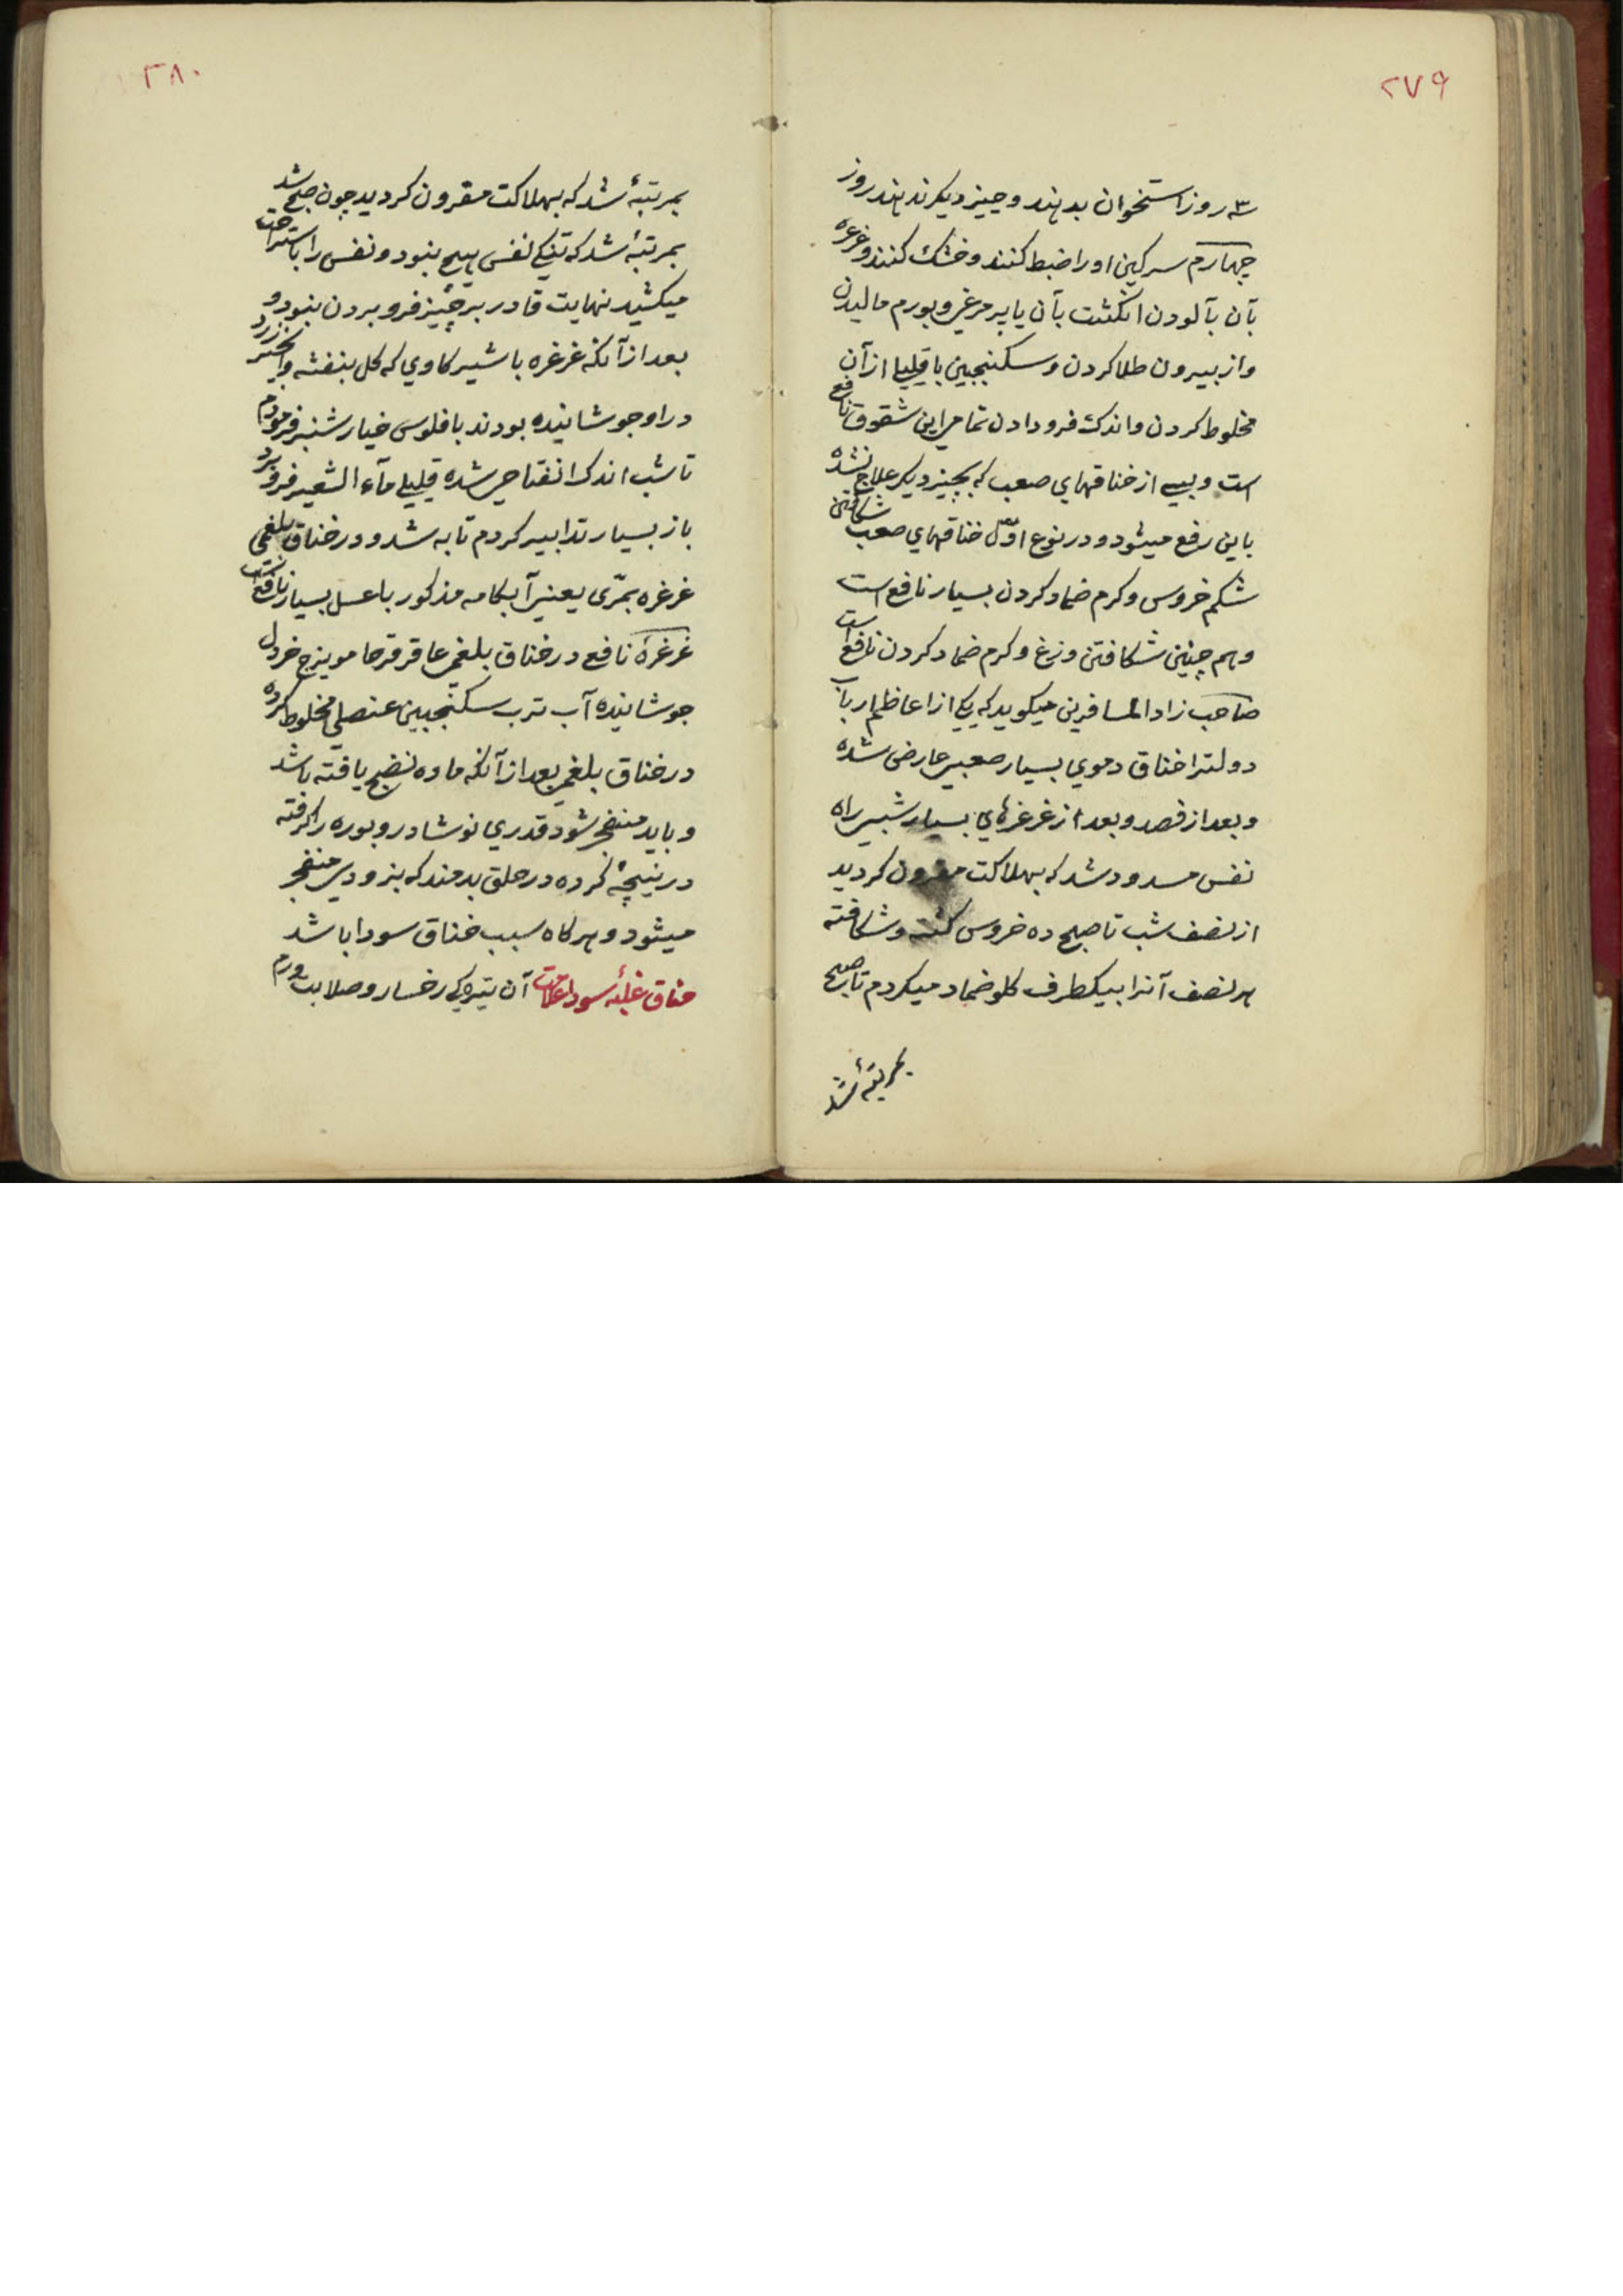 ۲۷۹
۳ روز استخوان بدهند و چیز دیکر ندهند روز
چهارم سرکین او را ضبط کنند و خشک کنند و غرغره
بآن بآلودن انکشت بآن یا پر مرغی و بورم مالیدن
و از بیرون طلا کردن و سکنجبین با قلیلی از آن
مخلوط کردن و اندک فرو دادن تمامی این شقوق نافع
است و بسی از خناقهای صعب که بچیز دیکر علاج نشده
باین رفع میشود و در نوع اوّل خناقهای صعب شکافتن
شکم خروس و کرم ضماد کردن بسیار نافع است
و هم چنین شکافتن وزغ و کرم ضماد کردن نافع است
صاحب زاد المسافرین میکوید که یکی از اعاظم ارباب
دولترا خناق دموی بسیار صعبی عارض شده
و بعد از فصد و بعد از غرغرهای بسیار شبی راه
نفس مسدود شد که بهلاکت مقرون کردید
از نصف شب تا صبح ده خروس کشته و شکافته
هر نصف آنرا بیکطرف کلو ضماد میکردم تا صبح
بمرتبهٔ شد
۲۸۰
بمرتبهٔ شد که بهلاکت مقرون کردید چون صبح شد
بمرتبهٔ شد که تنکی نفس هیچ نبود و نفس را باستراحت
میکشید نهایت قادر بر چیز فرو بردن نبود و
بعد از آنکه غرغره با شیر کاوی که کل بنفشه و انجیر زرد
در او جوشانیده بودند با فلوس خیار شنبر فرمودم
تا شب اندک انفتاحی شده قلیلی مآء الشعیر فرو برد
باز بسیار تدابیر کردم تا به شد و در خناق بلغمی
غرغره بمرّی یعنی آبکامه مذکور با عسل بسیار نافع است
غرغرهٔ نافع در خناق بلغمی عاقرقرحا مویزج خردل
جوشانیده آب ترب سکنجبین عنصلی مخلوط کرده
در خناق بلغمی بعد از آنکه ماده نضج یافته باشد
و باید منفجر شود قدری نوشادر و بوره را کرفته
در نیچهٔ کرده در حلق بدمند که بزودی منفجر
میشود و هرکاه سبب خناق سودا باشد
خناق غلبهٔ سودا علامت آن تیرکی رخسار و صلابت ورم